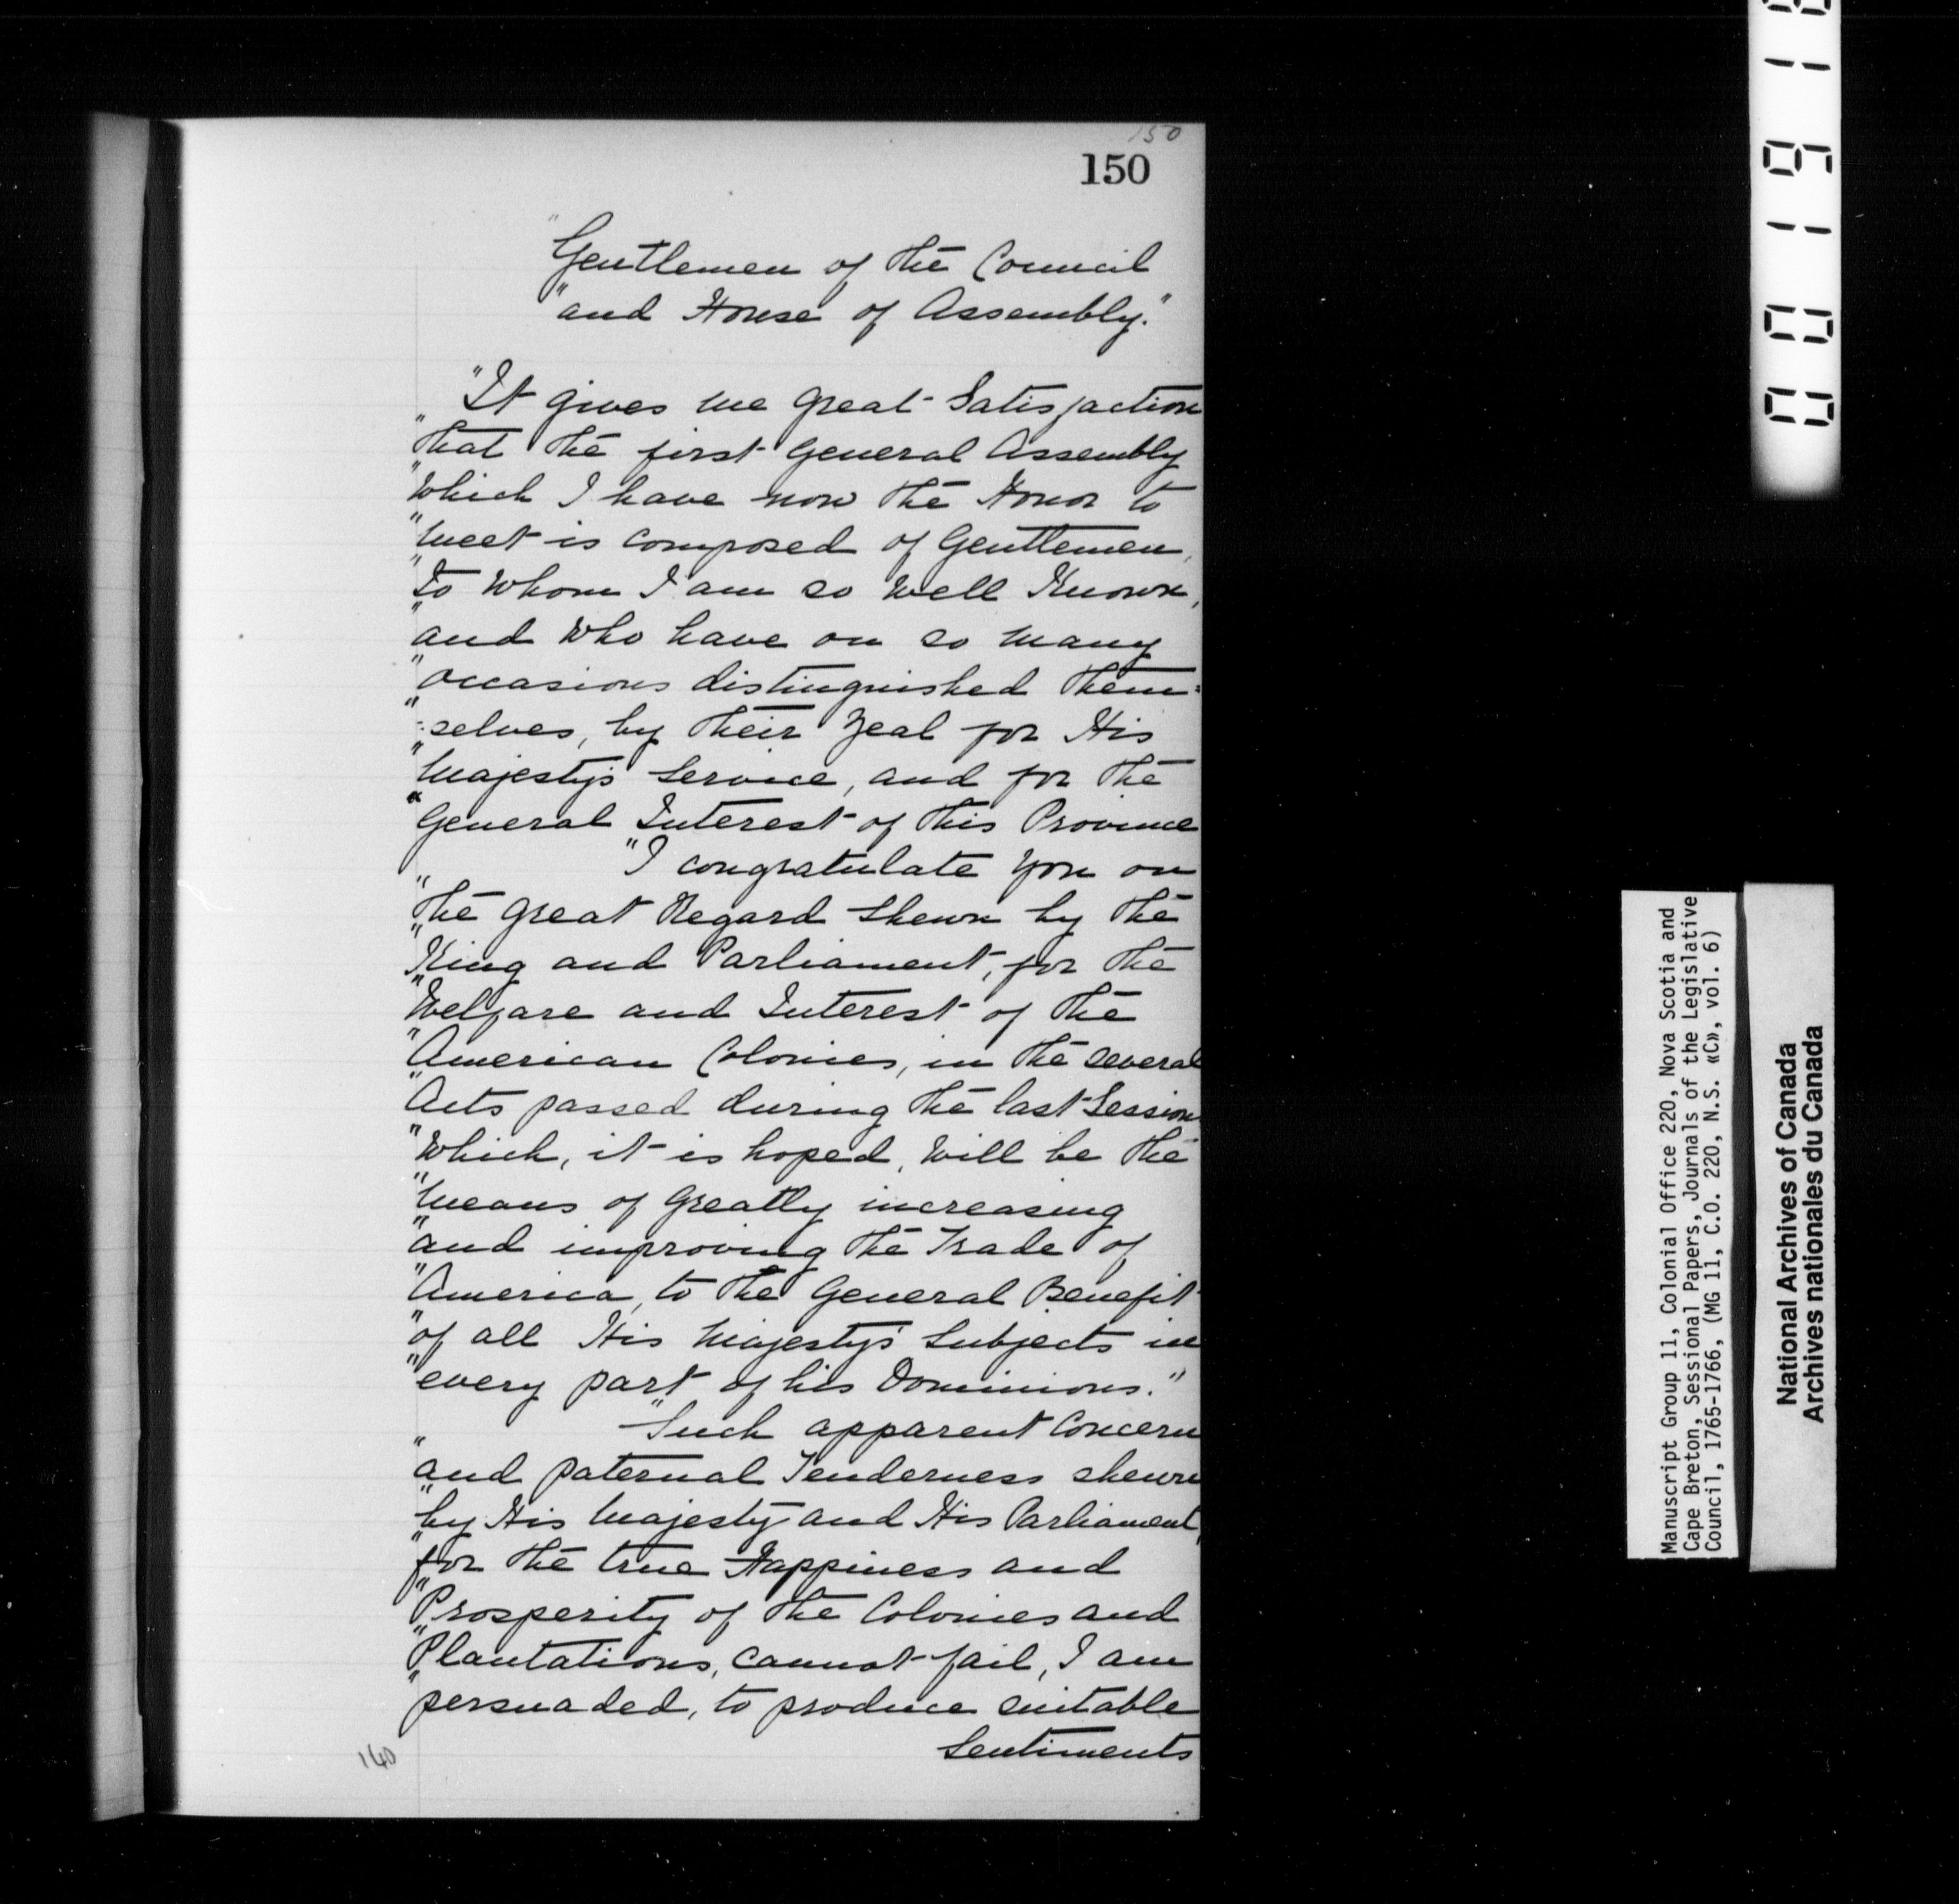 150
150
"Gentlemen of the Council
"and House of Assembly."
"It gives me great Satisfaction
"that the first General Assembly
"Which I have now the Honor to
"meet is composed of Gentlemen,
"to Whom I am so Well Known,
"and Who have on so many
"occasions distinguished them=
"=selves, by their Zeal for His
"Majesty's Service, and for the
"General Interest of this Province
"I congratulate you on
"the Great Regard Shewn by the
"King and Parliament, for the
"Welfare and Interest of the
"American Colonies, in the several
"Acts passed during the last Session
"Which, it is hoped, Will be the
"means of Greatly increasing
"and improving the Trade of
"America, to the General Benefit
"of all His Majesty's Subjects in
"every part of his Dominions."
"Such apparent Concern
"and paternal Tenderness shewn
"by His Majesty and His Parliament,
"for the true Happiness and
"Prosperity of the Colonies and
"Plantations, cannot fail, I am
"persuaded, to produce suitable
Sentiments
140
Manuscript Group 11, Colonial Office 220, Nova Scotia and
Cape Breton, Sessional Papers, Journals of the Legislative
Council, 1765-1766, (MG 11, C.O. 220, N.S. «C», vol. 6)
National Archives of Canada
Archives nationales du Canada